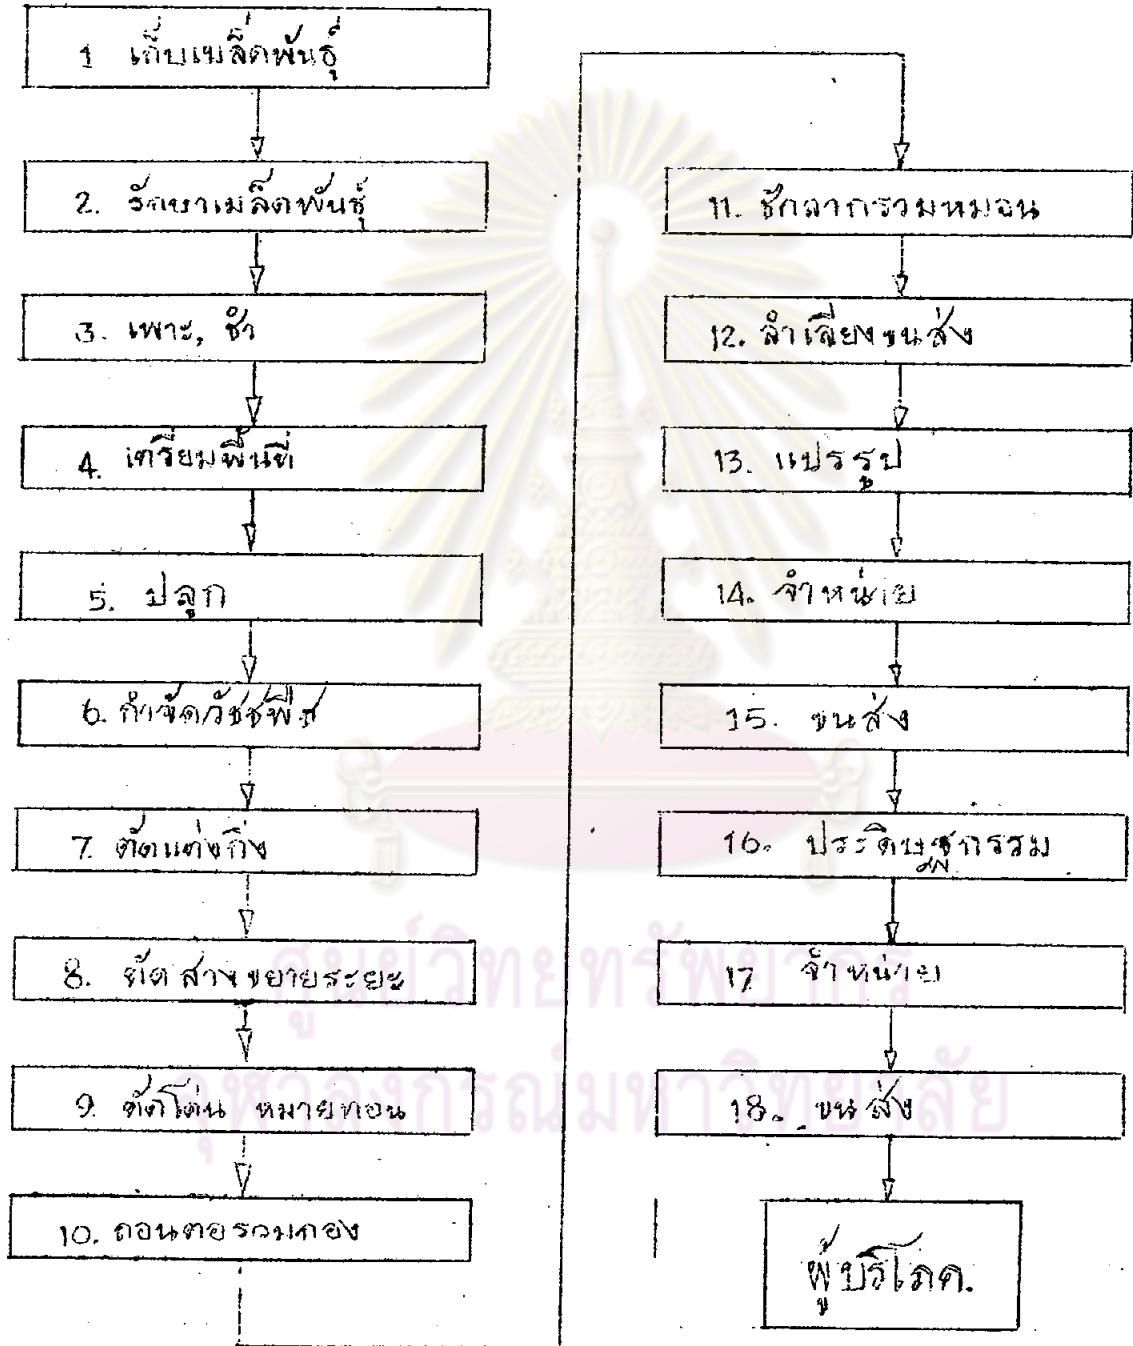 1 เก็บเมล็ดพันธุ์
2. รักษาเมล็ดพันธุ์
3. เพาะ, ชำ
4. เตรียมพื้นที่
5. ปลูก
6. กำจัดวัชชพืช
7. ตัดแต่งกิ่ง
8. ตัดสางขยายระยะ
9. ตัดโค่น หมายทอน
10. ถอนตอรวมกอง
11. ชักลากรวมหมอน
12. ลำเลียงขนส่ง
13. แปรรูป
14. จำหน่าย
15. ขนส่ง
16. ประดิษฐกรรม
17 จำหน่าย
18. ขนส่ง
ผู้บริโภค.
ศูนย์วิทยทรัพยากร
จุฬาลงกรณ์มหาวิทยาลัย